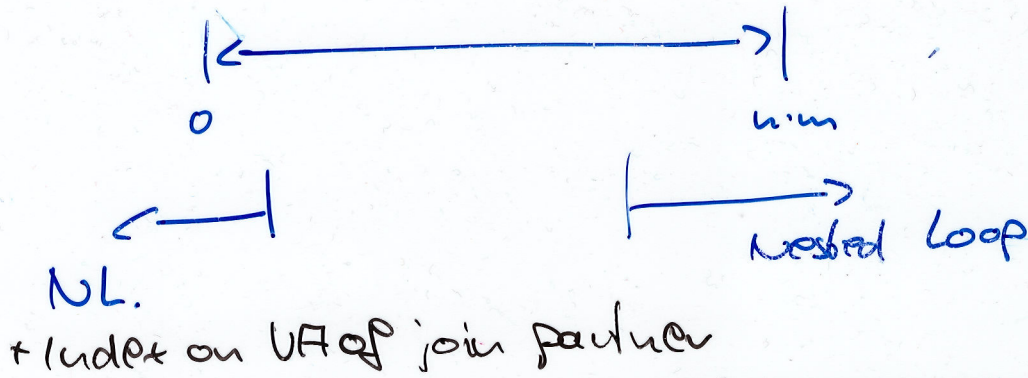 0
n·m
Nested Loop
NL.
+ Index on VA of join partner